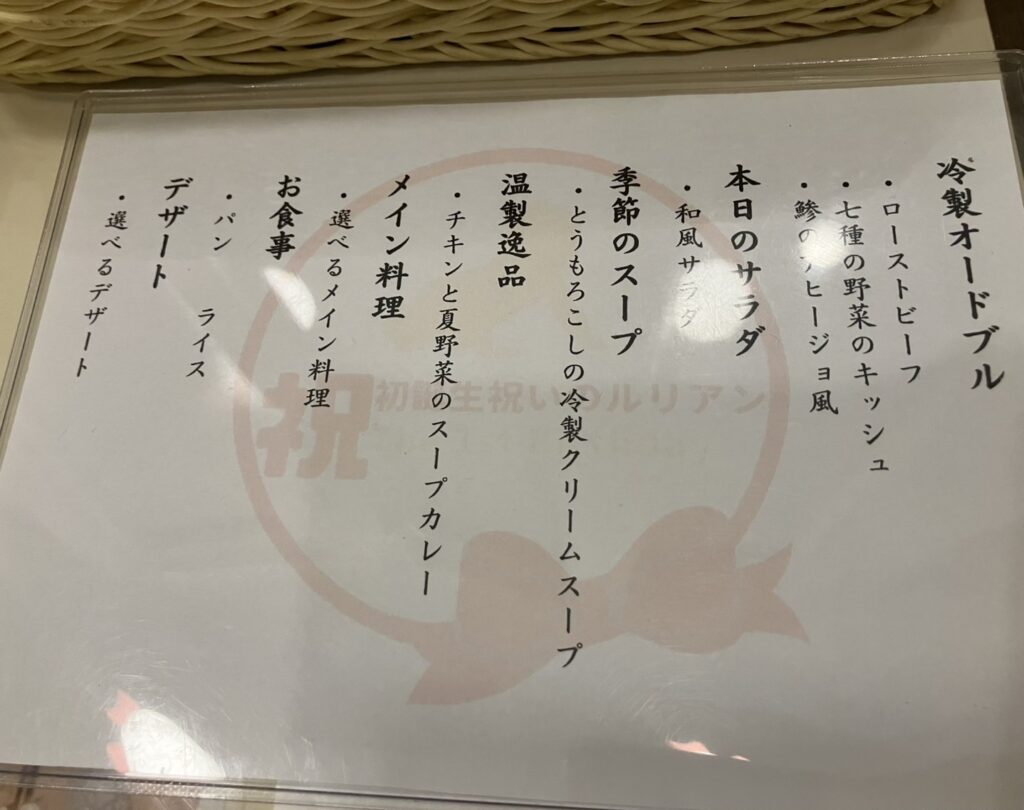 冷製オードブル
・ローストビーフ
・七種の野菜のキッシュ
・鯵のアヒージョ風
本日のサラダ
・和風サラダ
季節のスープ
・とうもろこしの冷製クリームスープ
温製逸品
・チキンと夏野菜のスープカレー
メイン料理
・選べるメイン料理
お食事
・パン　ライス
デザート
・選べるデザート
祝
初誕生祝いのルリアン